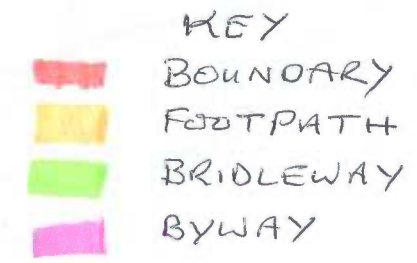 KEY
BOUNDARY
FOOTPATH
BRIDLEWAY
BYWAY